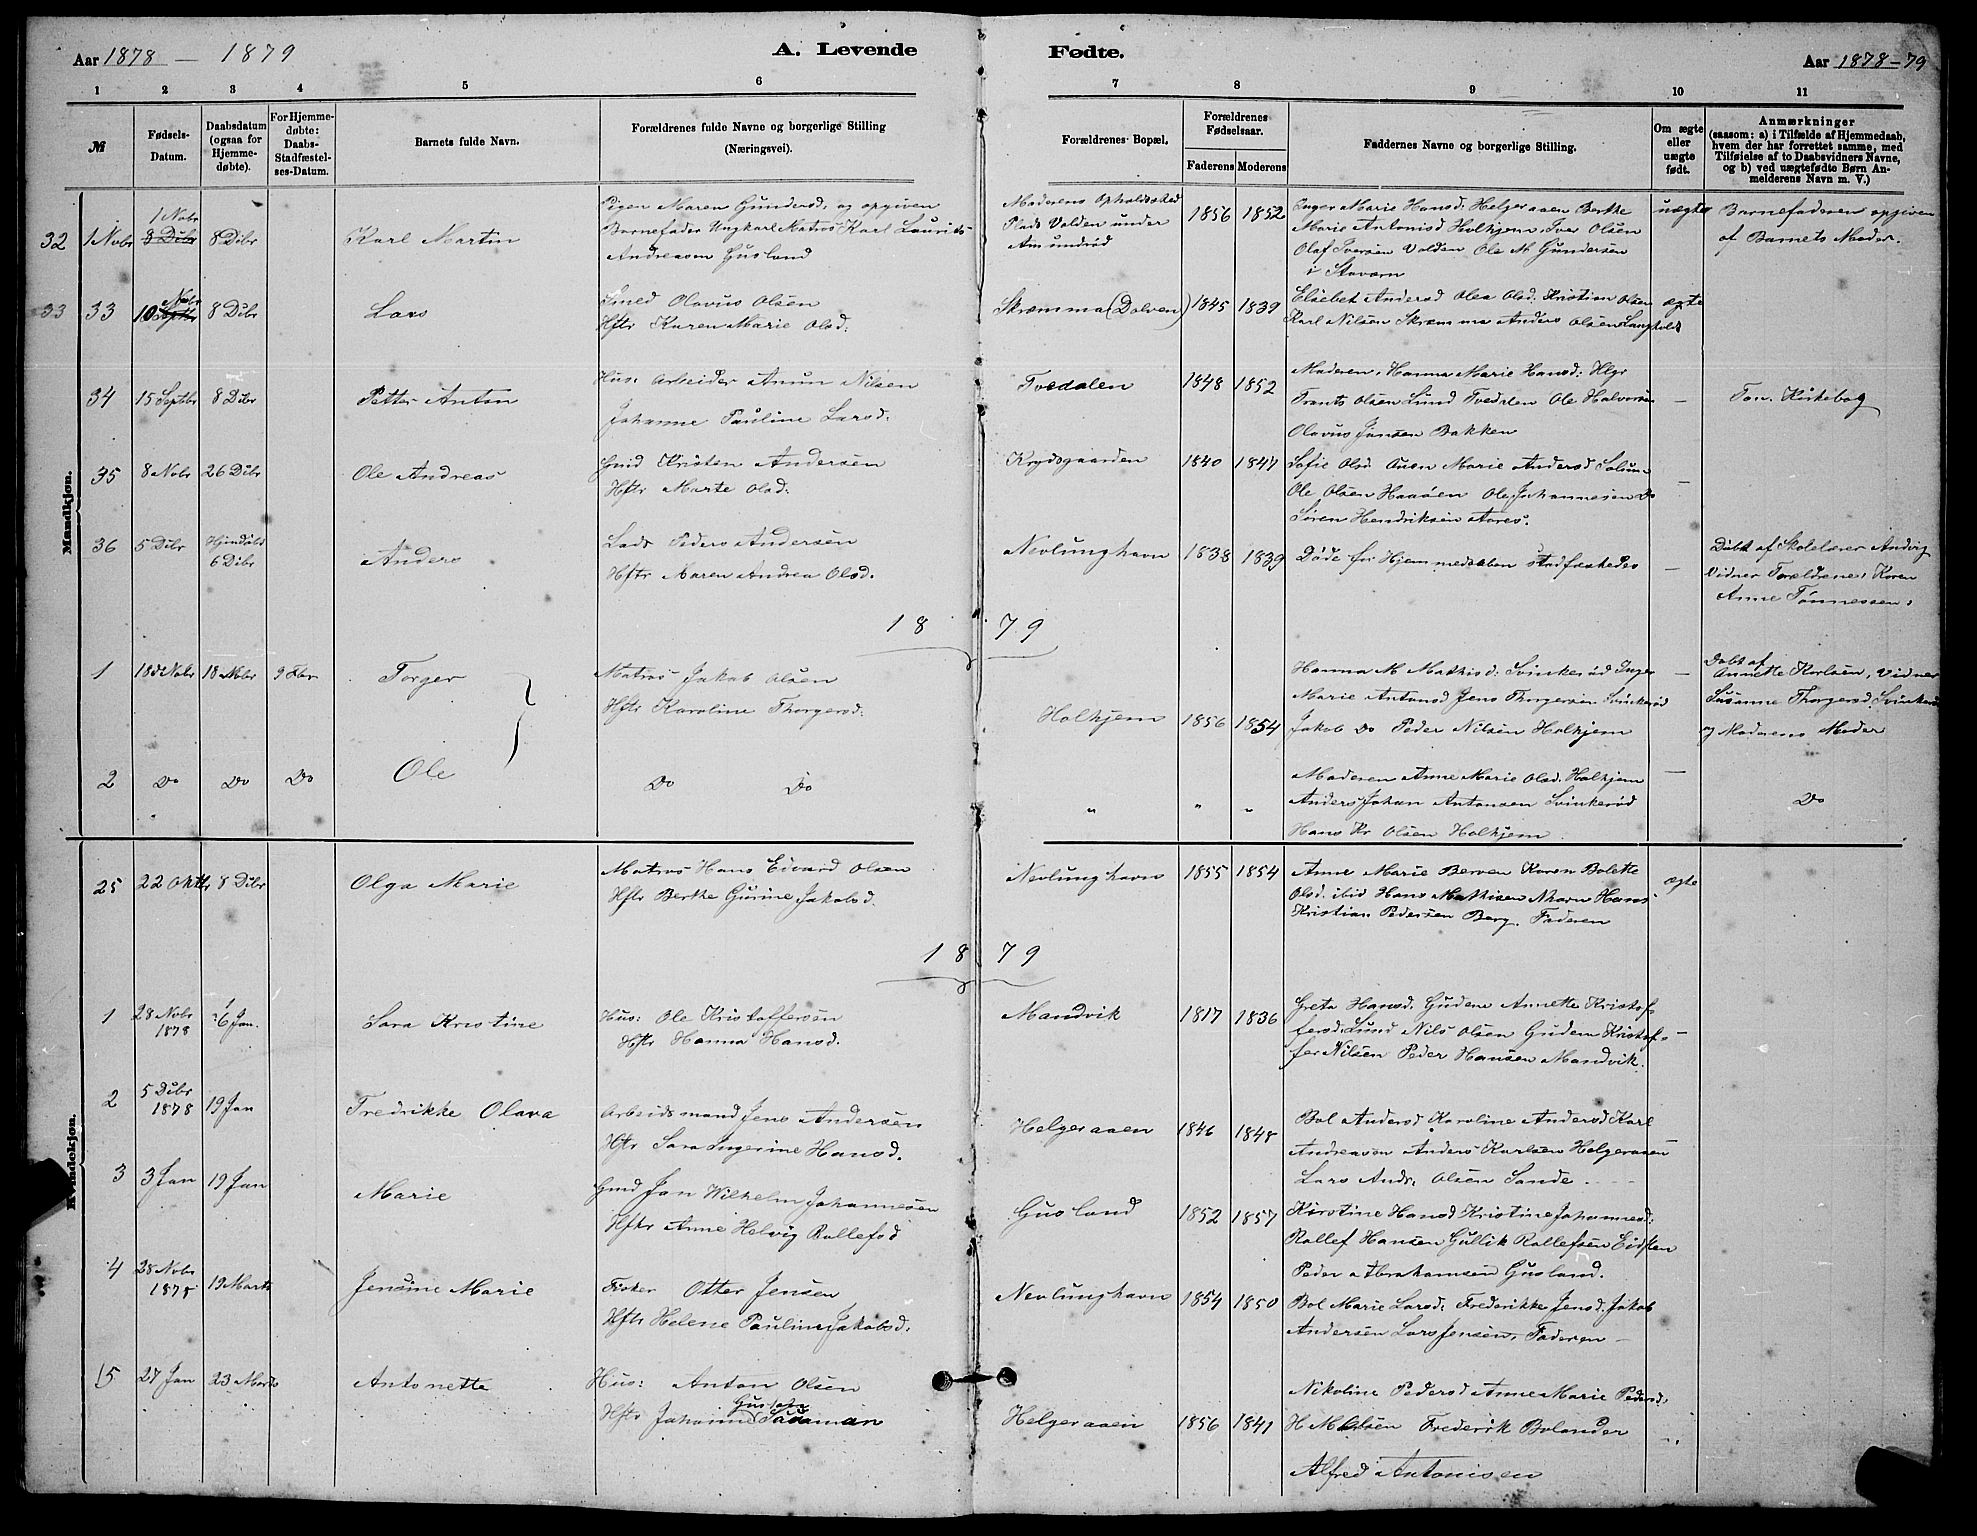 Aar 1878 — 1879
A. Levende
Fødte.
Aar 1878-79
1 2 3 4 5 6 7 8 9 10 11
№
Fødsels-
Datum.
Daabsdatum
(ogsaa for
Hjemme-
døbte).
For Hjemme-
døbte:
Daabs-
Stadfæstel-
ses-Datum.
Barnets fulde Navn.
Forældrenes fulde Navne og borgerlige Stilling
(Næringsvei).
Forældrenes Bopæl.
Forældrenes
Fødselsaar.
Faderens Moderens
Faddernes Navne og borgerlige Stilling.
Om ægte
eller
uægte
født.
Anmærkninger
(saasom: a) i Tilfælde af Hjemmedaab,
hvem der har forrettet samme, med
Tilføielse af to Daabsvidners Navne,
og b) ved uægtefødte Børn An-
melderens Navn m. V.)
Mandkjøn.
32 1 Nobr 1 Nobr 8 Dibr 8 Dibr
Karl Martin
Pigen Maren Gundersd. og opgiven
Barnefader Ungkarl Matros Karl Laurits
Andreasen Gusland
Moderens Opholdssted
Plads Valden under
Amundrød
1856 1852
Inger Marie Hansd. Helgeraaen Berthe
Marie Antonisd Holhjem, Iver Olsen
Olaf Iversen Valden Ole M Gundersen
i Staværn
uægte
Barnefaderen opgiven
af Barnets Moder.
33 33 10 Nobr Septbr 8 Dibr
Lars
Smed Olavus Olsen
Hstr Karen Marie Olsd:
Skræmma (Dolven)
1845 1839
Elsebet Andersd Olea Olsd. Kristian Olsen
Karl Nilsen Skræmma Anders Olsen Langholt
ægte
34 15 Septbr 8 Dibr
Petter Anton
Hus: Arbeider Anun Nilsen
Johanne Pauline Larsd:
Tvedalen
1848 1852
Moderen, Hanna Marie Hansd: Hlgr
Frants Olsen Lund Tvedalen Ole Halvorsen
Olavus Jensen Bakken
—
Ton. Kirkebog
35 8 Nobr 26 Dibr
Ole Andreas
Gmd Kristen Andersen
Hstr Marte Olsd:
Krydsgaarden
1840 1847
Sofie Olsd Anen Marie Andersd Solum
Ole Olsen Haaøen Ole Johannesen Do
Søren Hendriksen Aares.
—
36 5 Dibr Hjmdøbt
6 Dibr
Anders
Lods Peder Andersen
Hstr Maren Andrea Olsd.
Nevlunghavn
1838 1839
Døde før Hjemmedaaben stadfæstedes
—
Døbt af Skolelærer Andvig
Vidner Forældrene, Karen
Anne Tønnessen.
1879
1 18de Nobr 18 Nobr 9 Fbr
Torger
Matros Jakob Olsen
Hstr Karoline Thorgersd:
Holhjem
1856 1854
Hanna M Mathisd: Svinkerød Inger
Marie Antonsd Jens Thorgersen Svinkerød
Jakob Do Peder Nilsen Holhjem
—
Døbt af
Annette Karlsen, Vidner
Susanne Thorgersd. Svinkerød
og Moderens Moder
2 Do Do Do
Ole
Do Do
" " "
Moderen Anne Marie Olsd. Holhjem
Anders Johan Antonsen Svinkerød
Hans Kr Olsen Holhjem
—
Do
25 22 Oktbr 8 Dibr
Olga Marie
Matros Hans Edvard Olsen
Hstr Berthe Gurine Jakobsd.
Nevlunghavn
1855 1854
Anne Marie Berven Karen Bolette
Olsd. ibid Hans Mathisen Nhavn Hans
Kristian Pedersen Berg. Faderen
ægte
1879
Kvindekjøn.
1 28 Nobr
1878 6 Jan.
Sara Kristine
Hus: Ole Kristoffersen
Hstr Hanna Hansd.
Mandvik
1817 1836
Greta Hansd. Gudene Annette Kristof-
fersd. Lund Nils Olsen Gudem Kristof-
fer Nilsen Peder Hansen Mandvik.
—
2 5 Dibr
1878 19 Jan
Fredrikke Olava
Arbeidsmand Jens Andersen
Hstr Sara Ingerine Hansd.
Helgeraaen
1846 1848
Bol Andersd Karoline Andersd Karl
Andreasen Anders Karlsen Helgeraaen
Lars Andr: Olsen Sande.
3 3 Jan 19 Jan
Marie
Gmd Jan Wilhelm Johannesen
Hstr Anne Helvig Rollefsd
Gusland
1852 1857
Kirstine Hansd Kristine Johannesd:
Rollef Hansen Gullik Rollefsen Eidsten
Peder Abrahamsen Gusland.
4 28 Nobr
1878 19 Marts
Jensine Marie
Fisker Otter Jensen
Hstr Helene Pauline Jakobsd.
Nevlunghavn
1854 1850
Bol Marie Larsd: Frederikke Jensd. Jakob
Andersen Lars Jensen, Faderen —
5 27 Jan 23 Marts
Antonette
Hus: Anton Olsen
Hstr Johanne
Helgeraaen
1856 1841
Nikoline Pedersd Anne Marie Pedersd.
H M Olsen Frederik Bolander
Alfred Antonisen